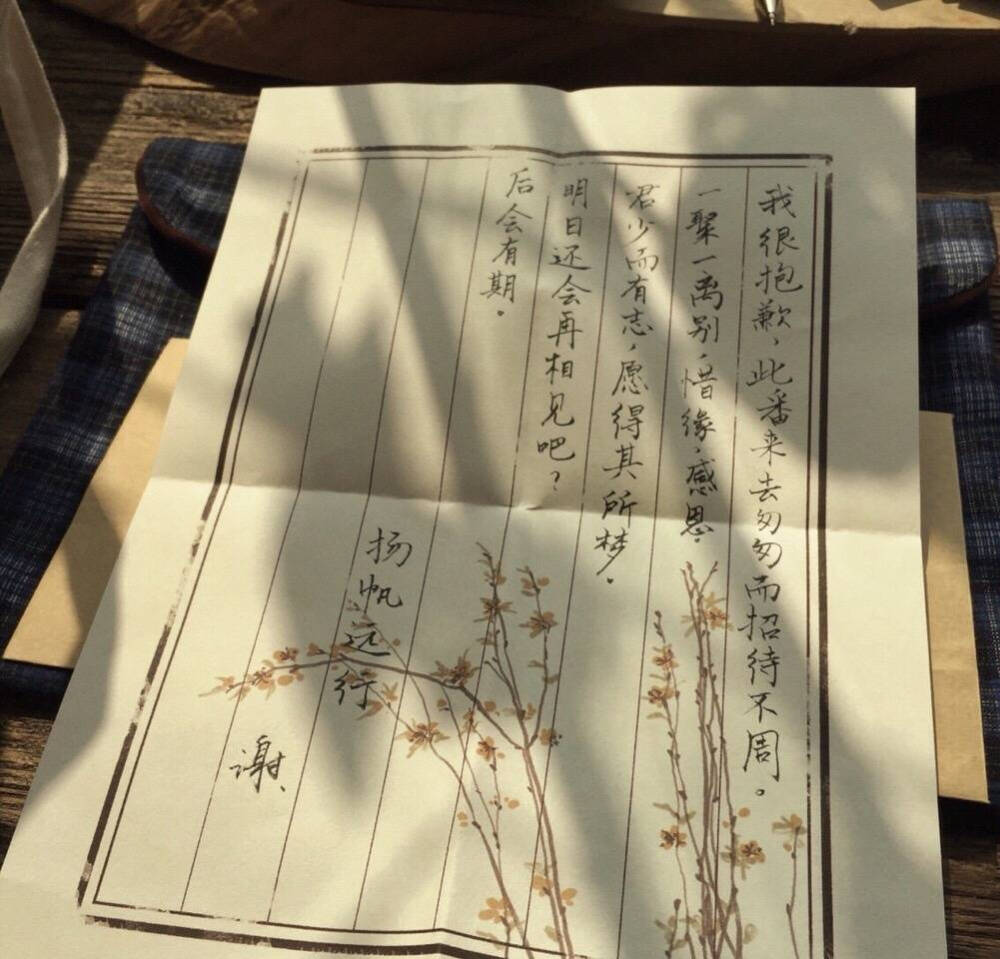 我很抱歉，此番来去匆匆而招待不周。
一聚一离别，惜缘，感恩。
君少而有志，愿得其所梦。
明日还会再相见吧？
后会有期。
扬帆远行
谢、